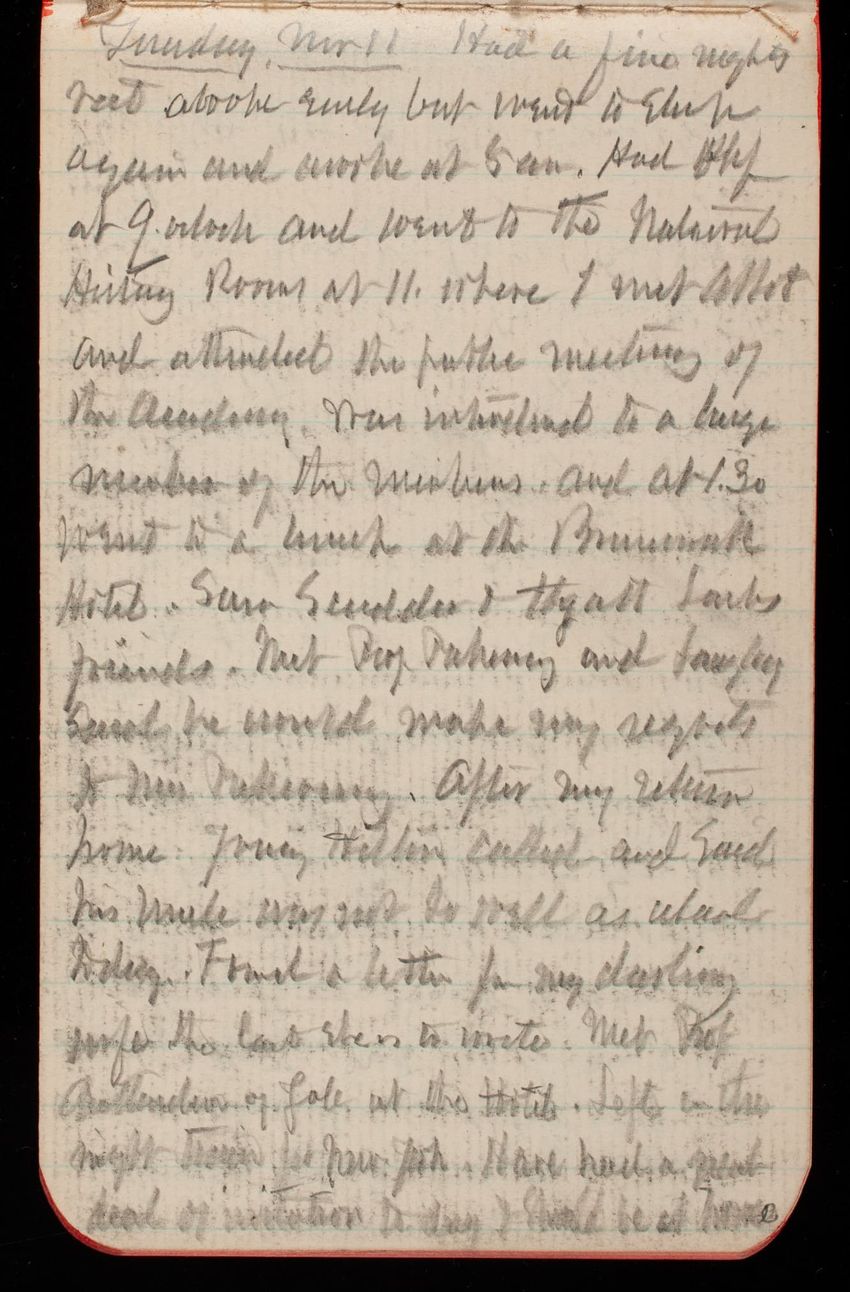 Tuesday, Nov 11 Had a fine nights
rest awoke early but went to sleep
again and awoke at 5 am. Had Bkf
at 9. oclock and went to the National
History Rooms at 11. where I met Abbot
and attended the public meeting of
the Academy. Was introduced to a large
number of the members. and at 1.30
went to a lunch at the Brunswick
Hotel. Saw Scudder & Hyatt
friends. Met Prof Pickering and Langley
Said he would make my regrets
to Mrs Pickering. After my return
home. Young Hilton called and Said
his Uncle was not so well as usual
today. Found a letter from my darling
wife the last She is to write. Met Prof
of Yale. at the Hotel. Left on the
night train for New York. Have had a great
deal of to day I Should be at home